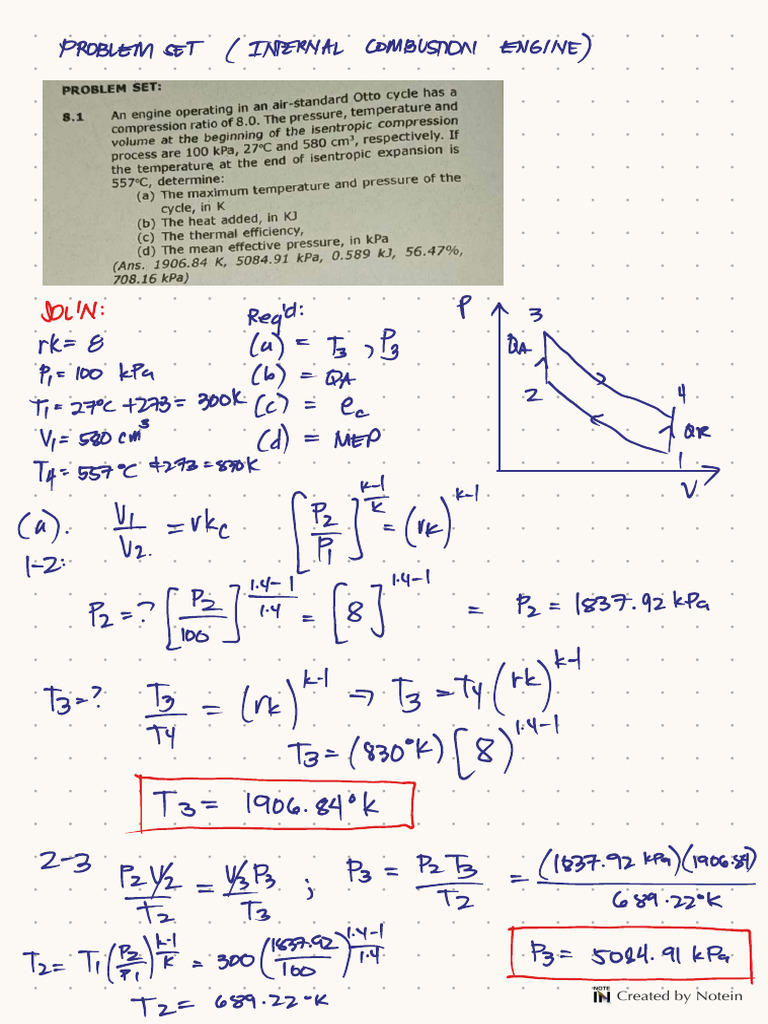 PROBLEM SET ( INTERNAL COMBUSTION ENGINE)
PROBLEM SET:
8.1 An engine operating in an air-standard Otto cycle has a
compression ratio of 8.0. The pressure, temperature and
volume at the beginning of the isentropic compression
process are 100 kPa, 27°C and 580 cm³, respectively. If
the temperature at the end of isentropic expansion is
557°C, determine:
(a) The maximum temperature and pressure of the
cycle, in K
(b) The heat added, in KJ
(c) The thermal efficiency,
(d) The mean effective pressure, in kPa
(Ans. 1906.84 K, 5084.91 kPa, 0.589 kJ, 56.47%,
708.16 kPa)
SOL'N:
rk = 8
P₁ = 100 kPa
T₁ = 27°C + 273 = 300K
V₁ = 580 cm³
T4 = 557°C + 273 = 830K
Req'd:
(a) = T₃, P₃
(b) = QA
(c) = ec
(d) = MEP
P
3
QA
2
4
QR
1
V
(a). V₁/V₂ = rkc [P₂/P₁]^(k-1/k) = (rk)^(k-1)
1-2:
P₂ = ? [P₂/100]^(1.4-1/1.4) = [8]^(1.4-1) = P₂ = 1837.92 kPa
T₃ = ? T₃/T4 = (rk)^(k-1) ⇒ T₃ = T4 (rk)^(k-1)
T₃ = (830°K) [8]^(1.4-1)
T₃ = 1906.84°K
2-3 P₂V₂/T₂ = V₃P₃/T₃ ; P₃ = P₂T₃/T₂ = (1837.92 kPa)(1906.84)/689.22°K
T₂ = T₁(P₂/P₁)^(k-1/k) = 300(1837.92/100)^(1.4-1/1.4)
T₂ = 689.22°K
P₃ = 5084.91 kPa
NOTE IN Created by Notein